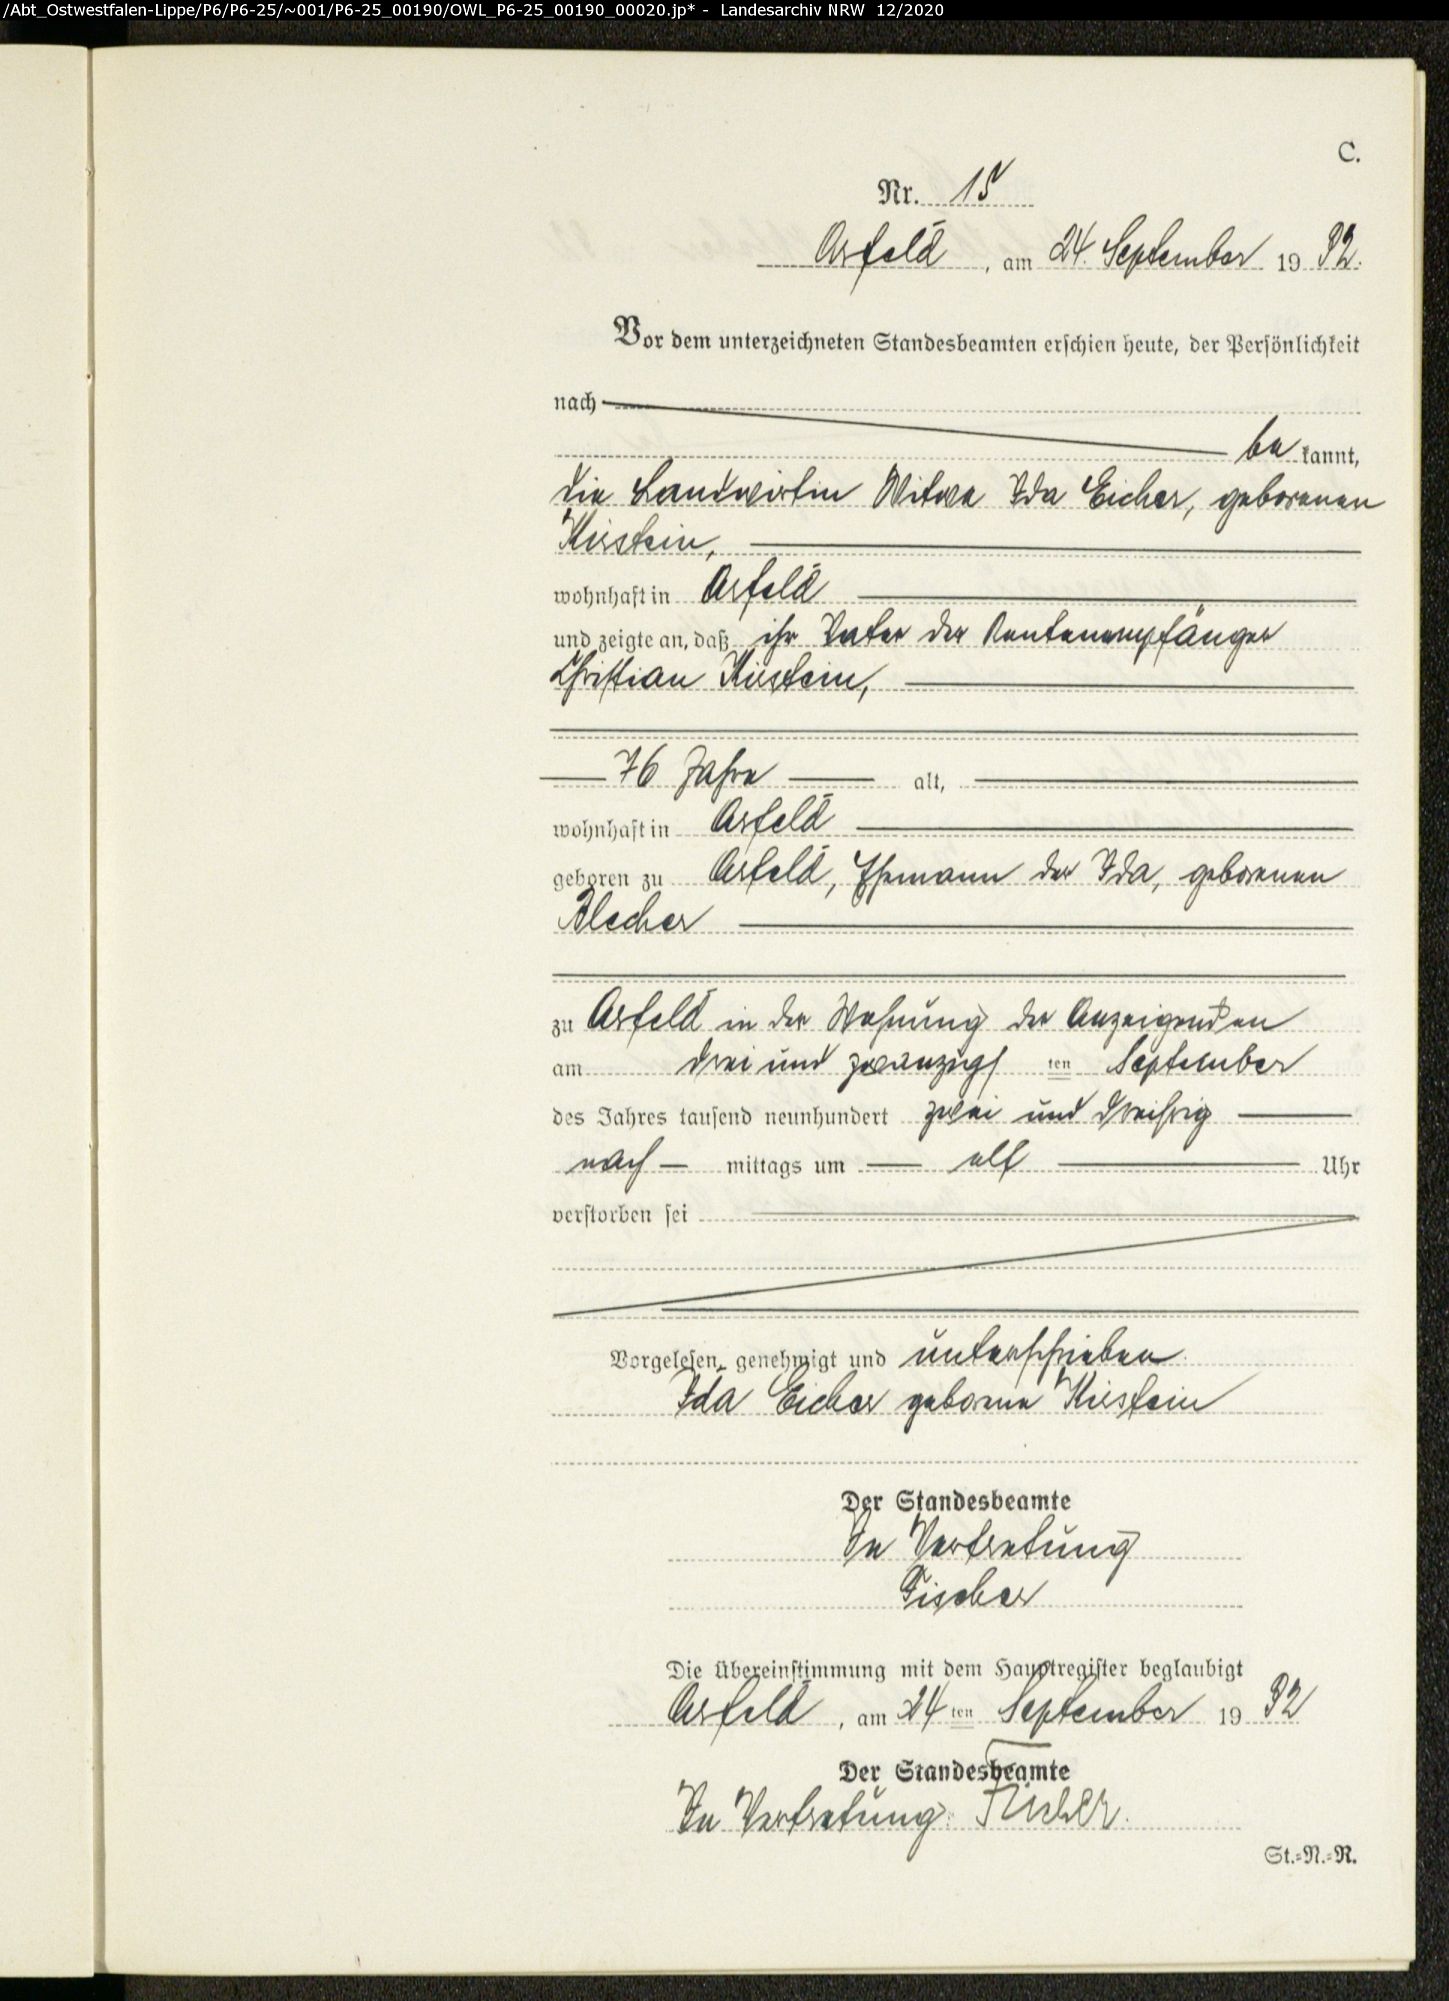 /Abt_Ostwestfalen-Lippe/P6/P6-25/~001/P6-25_00190/OWL_P6-25_00190_00020.jp* - Landesarchiv NRW 12/2020
C.
Nr. 15
Arfeld, am 24. September 1932.
Vor dem unterzeichneten Standesbeamten erschien heute, der Persönlichkeit
nach
be kannt,
die Landwirtin Witwe Ida Eicher, geborenen
Kirstein,
wohnhaft in Arfeld
und zeigte an, daß ihr Vater der Rentenempfänger
Christian Kirstein,
76 Jahre alt,
wohnhaft in Arfeld
geboren zu Arfeld, Ehemann der Ida, geborenen
Blecher
zu Arfeld in der Wohnung der Anzeigenden
am drei und zwanzigsten September
des Jahres tausend neunhundert zwei und dreißig
nach mittags um elf Uhr
verstorben sei
Vorgelesen, genehmigt und unterschrieben
Ida Eicher geborne Kirstein
Der Standesbeamte
In Vertretung
Fischer
Die Übereinstimmung mit dem Hauptregister beglaubigt
Arfeld, am 24ten September 1932
Der Standesbeamte
In Vertretung: Fischer.
St.-N.-R.